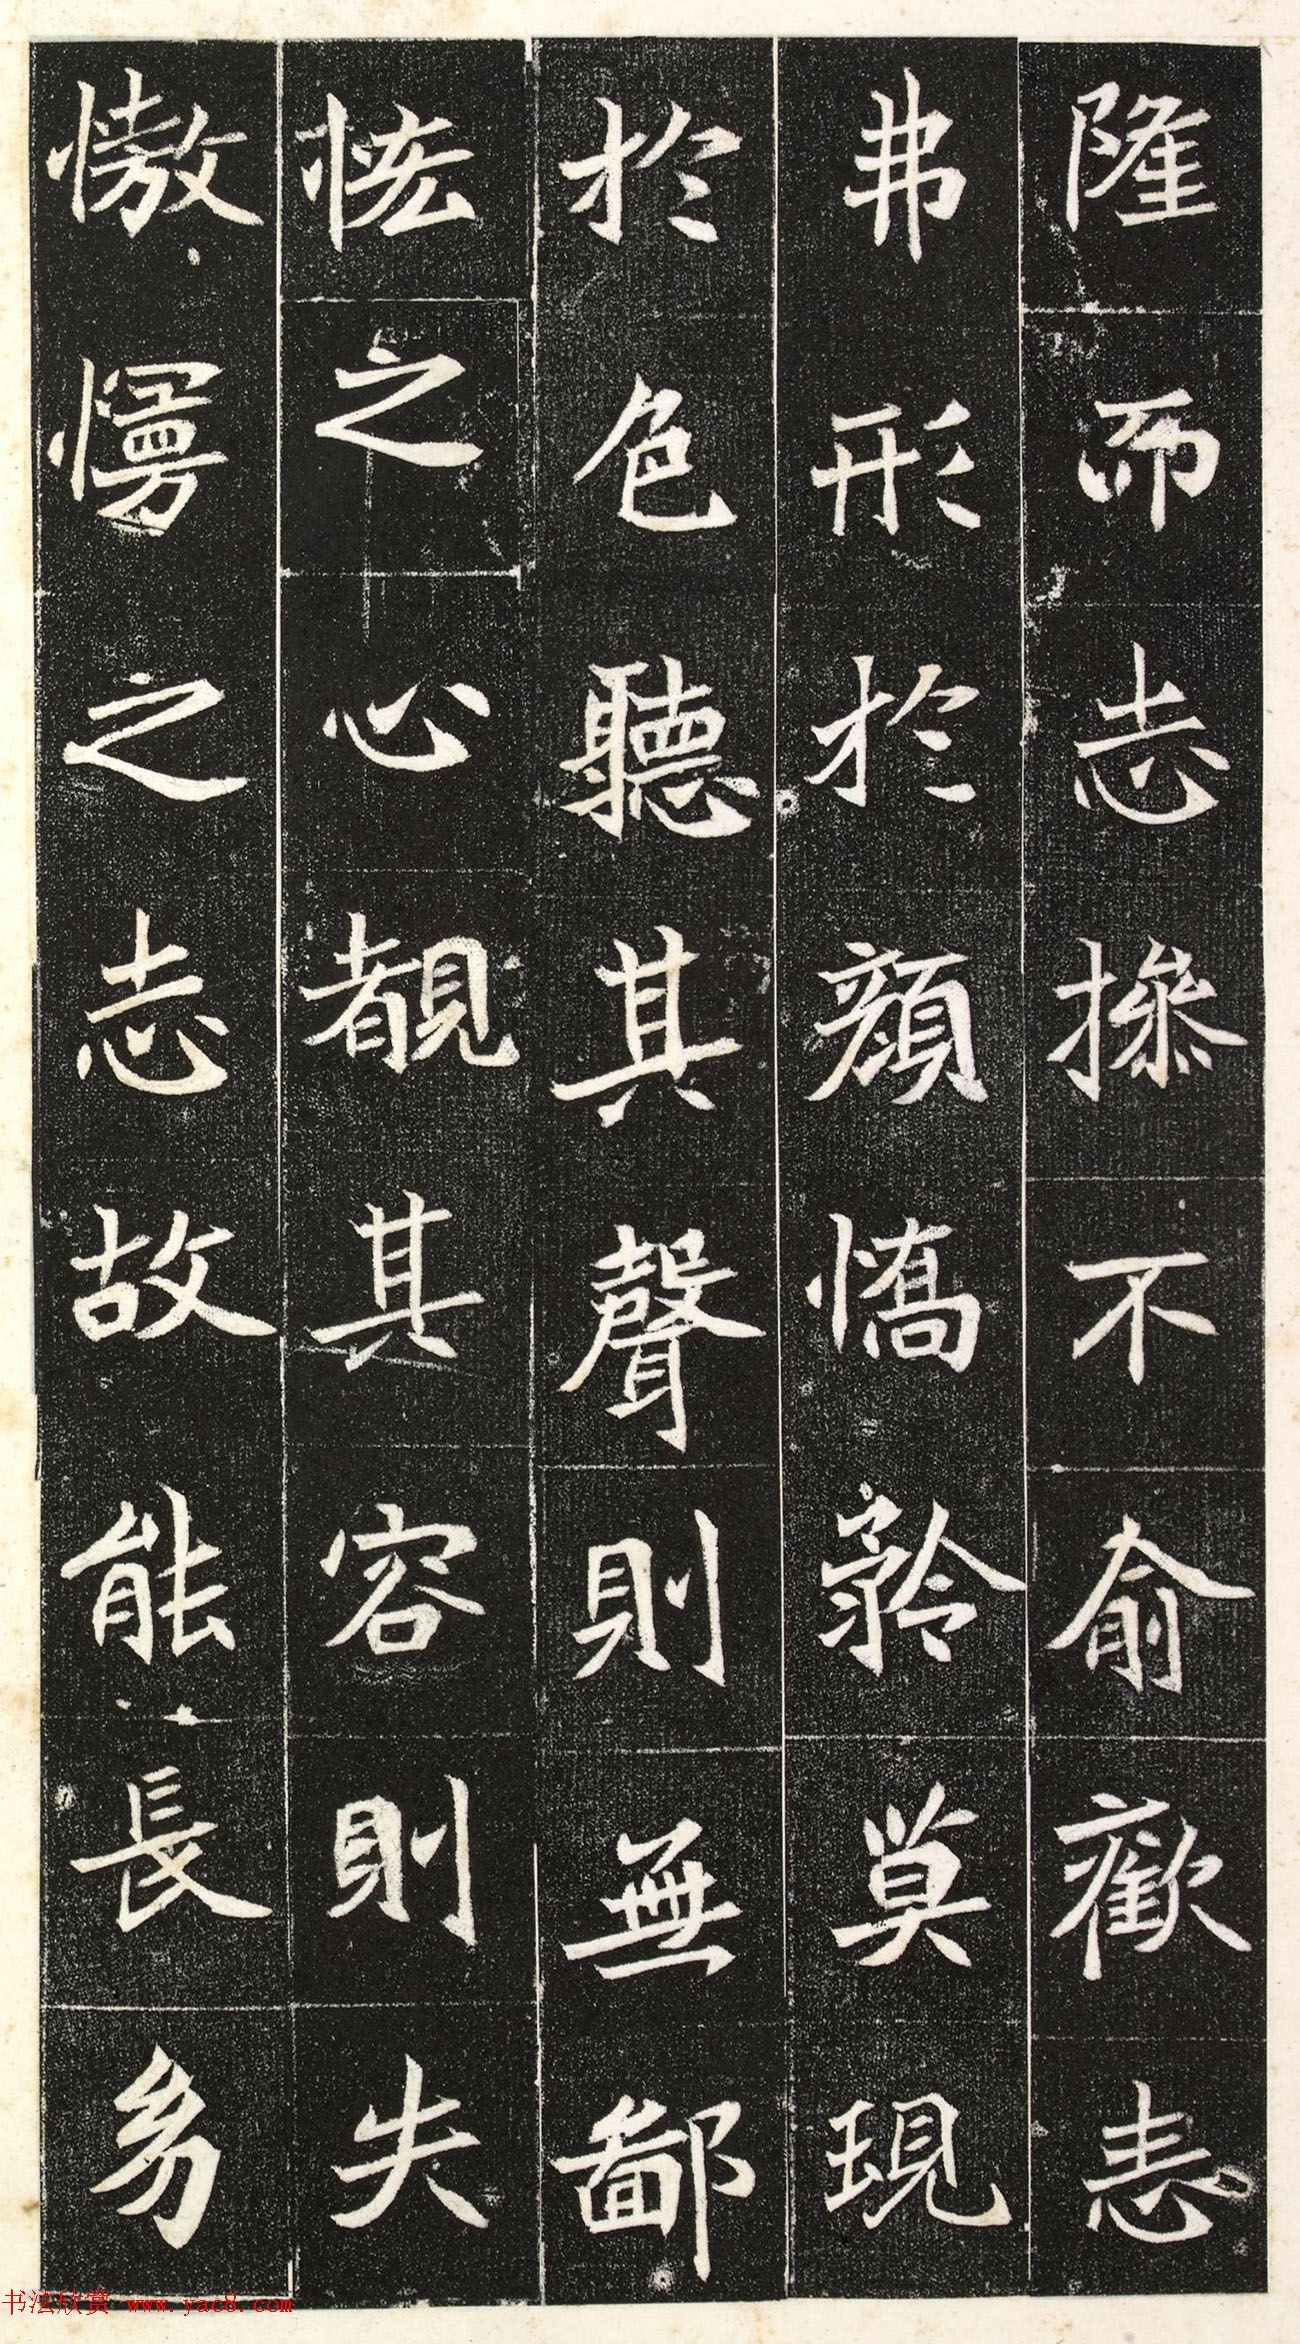 隆而志操不俞歡恚
弗形於顏憍矜莫現
於色聽其聲則無鄙
恡之心覩其容則失
慠慢之志故能長幼
书法欣赏 www.yac8.com